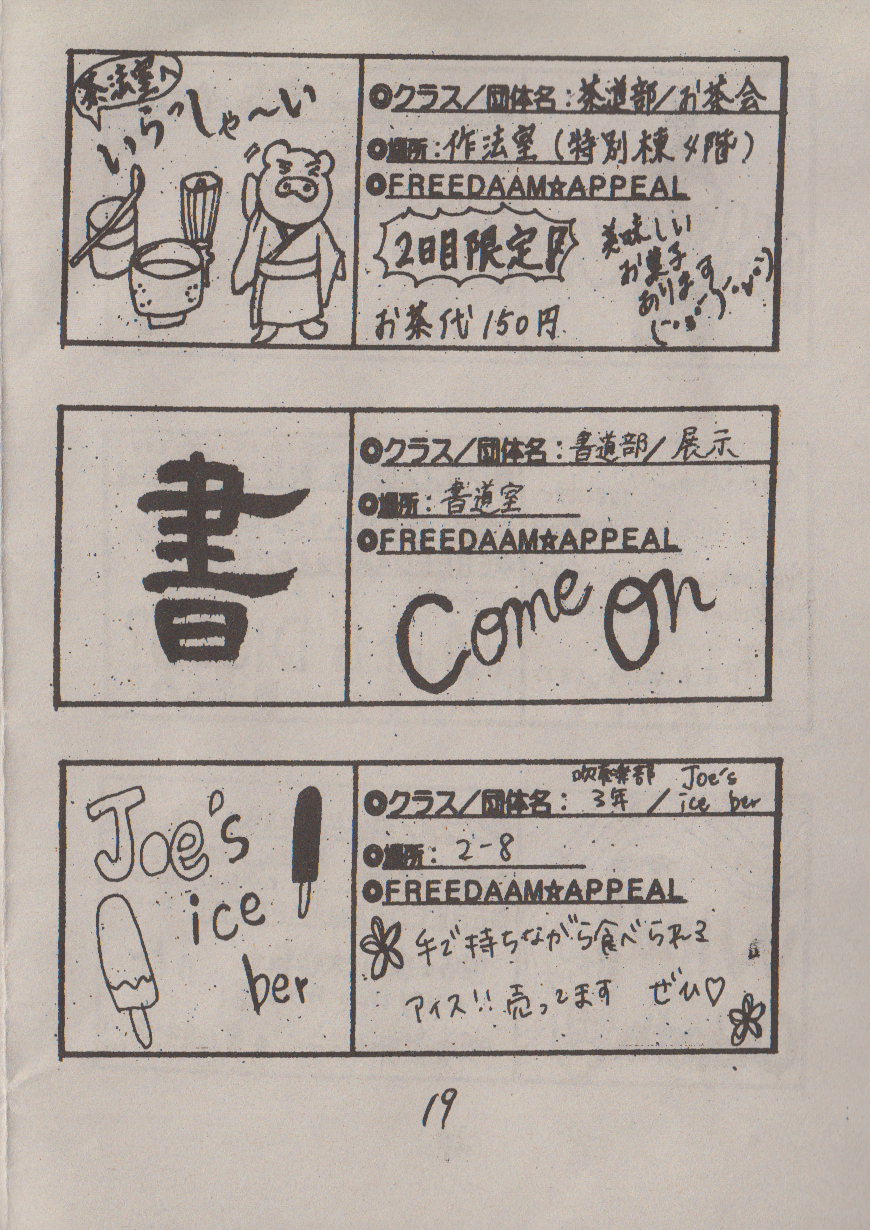 茶法室へ
いらっしゃ〜い
◎クラス／団体名：茶道部/お茶会
◎場所：作法室(特別棟4階)
◎FREEDAAM☆APPEAL
2日目限定!!
美味しい
お菓子
あります
お茶代150円
書
◎クラス／団体名：書道部/展示
◎場所：書道室
◎FREEDAAM☆APPEAL
Come On
Joe's
ice
ber
◎クラス／団体名：吹奏楽部3年/Joe's ice ber
◎場所：2-8
◎FREEDAAM☆APPEAL
手で持ちながら食べられる
アイス!!売ってます ぜひ♡
19